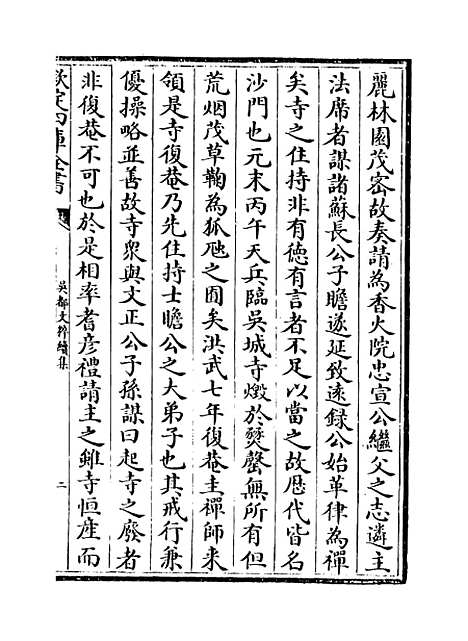 麗林園茂密故奏請為香火院忠宣公繼父之志遴主
法席者謀諸蘇長公子瞻遂延致遠録公始革律為禪
矣寺之住持非有德有言者不足以當之故歴代皆名
沙門也元末丙午天兵臨吳城寺燬於燹罄無所有但
荒烟茂草鞠為狐兎之囿矣洪武七年復菴圭禪師来
領是寺復菴乃先住持士瞻公之大弟子也其戒行兼
優操略並善故寺衆與文正公子孫謀曰起寺之廢者
非復菴不可也於是相率耆彦禮請主之雖寺恒産而
欽定四庫全書
吳都文粹續集
二